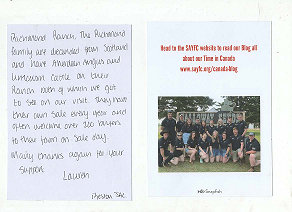 Richmond Ranch. The Richmond
family are decended from Scotland
and have Aberdeen Angus and
Limousin Cattle on their
Ranch both of which we got
to see on our visit. They have
their own Sale every year and
often welcome over 200 buyers
to their town on Sale day.
Many thanks again for your
Support
Lauren
Read to the SAYFC website to read our Blog all
about our Time in Canada
www.sayfc.org/canada-blog